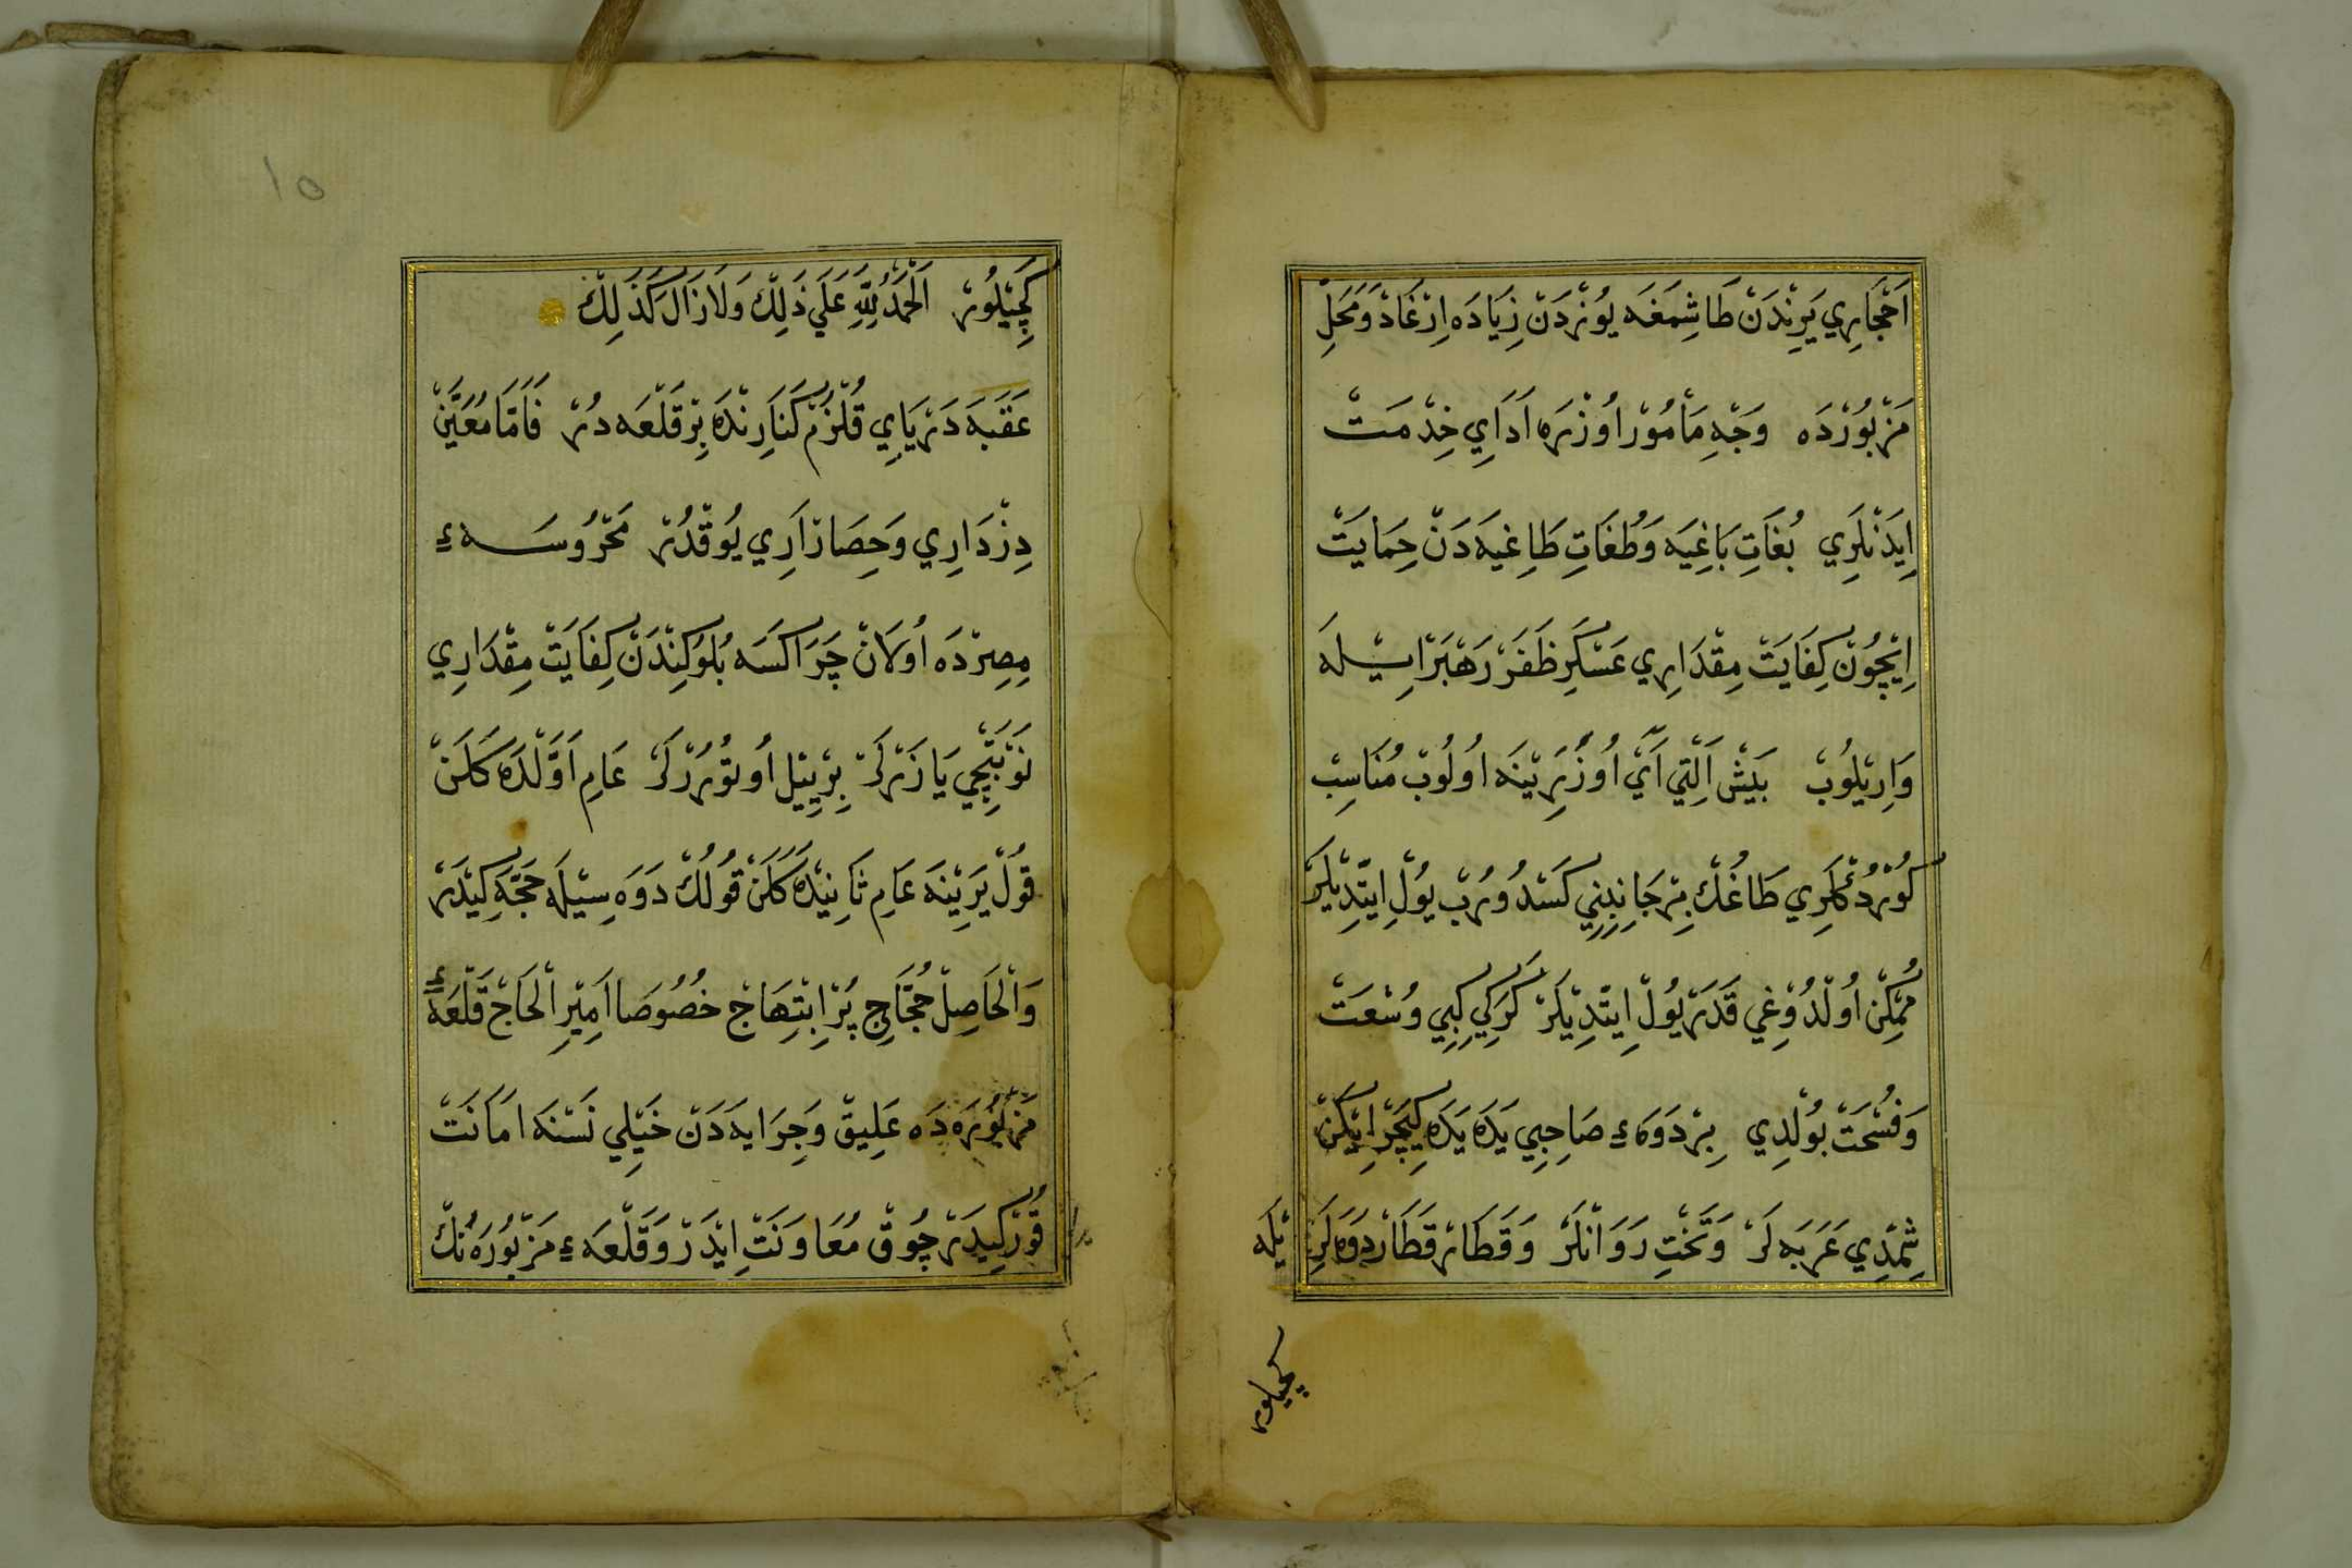 اَحْجَارِي يَرِنْدَنْ طَاشِمَغَه يُوزْدَنْ زِيَادَه اِرْغَادْ وَمَحَلِّ
مَزْبُورْدَه وَجْهِ مَأْمُورْ اُوزْرَه اَدَايِ خِدْمَتْ
اِيدَنْلَرِي بُغَاتِ بَاغِيَه وَطُغَاتِ طَاغِيَه دَنْ حِمَايَتْ
اِيچُونْ كِفَايَتْ مِقْدَارِي عَسْكَرِ ظَفَرْ رَهْبَرْ اِيسِيلَه
وَارِيلُوبْ بَيْشْ اَلْتِي اَيْ اُوزَرِينَه اُولُوبْ مُنَاسِبْ
كُورْدُكْلَرِي طَاغُكْ بِرْ جَانِبِنِي كَسْدُورُبْ يُولْ اِيتْدِيلَرْ
مُمْكِنْ اُولْدُوغِي قَدَرْ يُولْ اِيتْدِيلَرْ كَرَكِي كِبِي وُسْعَتْ
وَفُسْحَتْ بُولْدِي بِرْ دَوَهءِ صَاحِبِي يَدَه يَدَه كِيچَرْ اِيكَنْ
شِمْدِي عَرَبَه لَرْ وَتَخْتِ رَوَانْلَرْ وَقَطَارْ قَطَارْ دَوَه لَرِ يْلَه
كچيلور
١٥
كِچِيلُورْ اَلْحَمْدُ لِلّٰهِ عَلَي ذَلِكَ وَلَا زَالَ كَذَلِكَ
عَقَبَه دَرْيَايِ قُلْزُمْ كَنَارِنْدَه بِرْ قَلْعَه دُرْ فَاَمَّا مُعَيَّنْ
دِزْدَارِي وَحِصَارْ اَرِي يُوقْدُرْ مَحْرُوسَهءِ
مِصِرْدَه اُولَانْ چَرَاكَسَه بُلُوكِنْدَنْ كِفَايَتْ مِقْدَارِي
نَوْبَتْچِي يَازَرْلَرْ بِرْ يِيلْ اُوتُورُرْلَرْ عَامِ اَوَّلْدَه كَلَنْ
قُولْ يَرِينَه عَامِ ثَانِيدَه كَلَنْ قُولُكْ دَوَه سِيلَه حَجَّه كِيدَرْ
وَالْحَاصِلْ حُجَّاجِ پُرْ اِبْتِهَاجْ خُصُوصَا اَمِيرِ الْحَاجْ قَلْعَهءِ
مَزْبُورَه دَه عَلِيقْ وَجِرَايَه دَنْ خَيْلِي نَسْنَه اَمَانَتْ
قُورْ كِيدَرْ چُوقْ مُعَاوَنَتْ اِيدَرْ وَقَلْعَهءِ مَزْبُورَه نُكْ